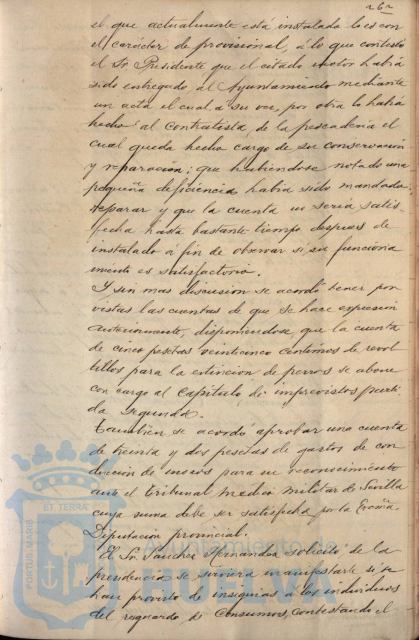 262
el que actualmente está instalado lo es con
el carácter de provisional, á lo que contestó
el Sr. Presidente que el citado motor había
sido entregado al Ayuntamiento mediante
un acta el cual a su vez, por otra lo había
hecho al contratista de la pescadería el
cual queda hecho cargo de su conservación
y reparación; que habiéndose notado una
pequeña deficiencia había sido mandada
reparar y que la cuenta no sería satis-
fecha hasta bastante tiempo despues de
instalado á fin de obserar si su funciona
miento es satisfactorio.
Y sin mas discusion se acordó tener por
vistas las cuentas de que se hace expresion
anteriormente, disponiendose que la cuenta
de cinco pesetas veinticinco centimos de revol
tillos para la estincion de perros se abone
con cargo al Capitulo de imprevistos parti-
da segunda.
Tambien se acordó aprobar una cuenta
de treinta y dos pesetas de gastos de con
duccion de mozos para su reconocimiento
ante el tribunal medico militar de Sevilla
cuya suma debe ser satisfecha por la Excma.
Diputacion provincial.
El Sr. Sanchez Hernandez solicitó de la
presidencia se sirviera manifestarle si se
han provisto de insignias a los individuos
del resguardo de Consumos, contestando el
PORTUS MARIS ET TERRA
Ayuntamiento de
HUELVA